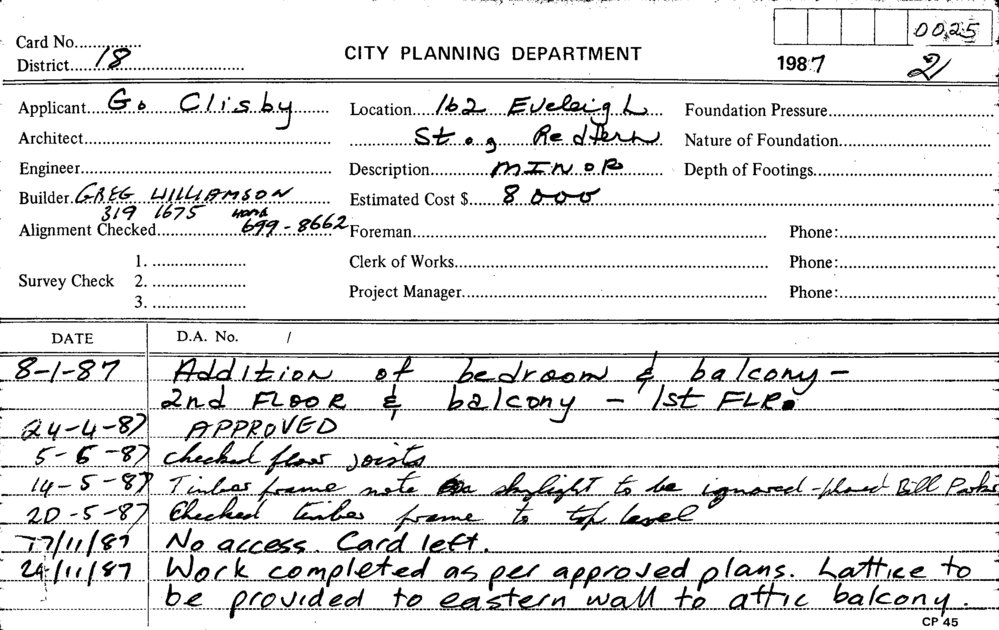 0025
Card No.
District 18
CITY PLANNING DEPARTMENT
1987
21
Applicant G. Clisby
Location 162 Eveleigh
Foundation Pressure
Architect
St., Redfern
Nature of Foundation
Engineer
Description MINOR
Depth of Footings
Builder GREG WILLIAMSON
Estimated Cost $ 8000
319 1675
Alignment Checked 699-8662
Foreman
Phone:
1.
Clerk of Works
Phone:
Survey Check 2.
3.
Project Manager
Phone:
DATE
D.A. No. /
8-1-87 Addition of bedroom & balcony –
2nd FLOOR & balcony – 1st FLR.
24-4-87 APPROVED
5-5-87 checked floor joists
14-5-87 Timber frame note skylight to be ignored - phoned Bill
20-5-87 Checked timber frame to top level
17/11/87 No access. Card left.
24/11/87 Work completed as per approved plans. Lattice to
be provided to eastern wall to attic balcony.
CP 45